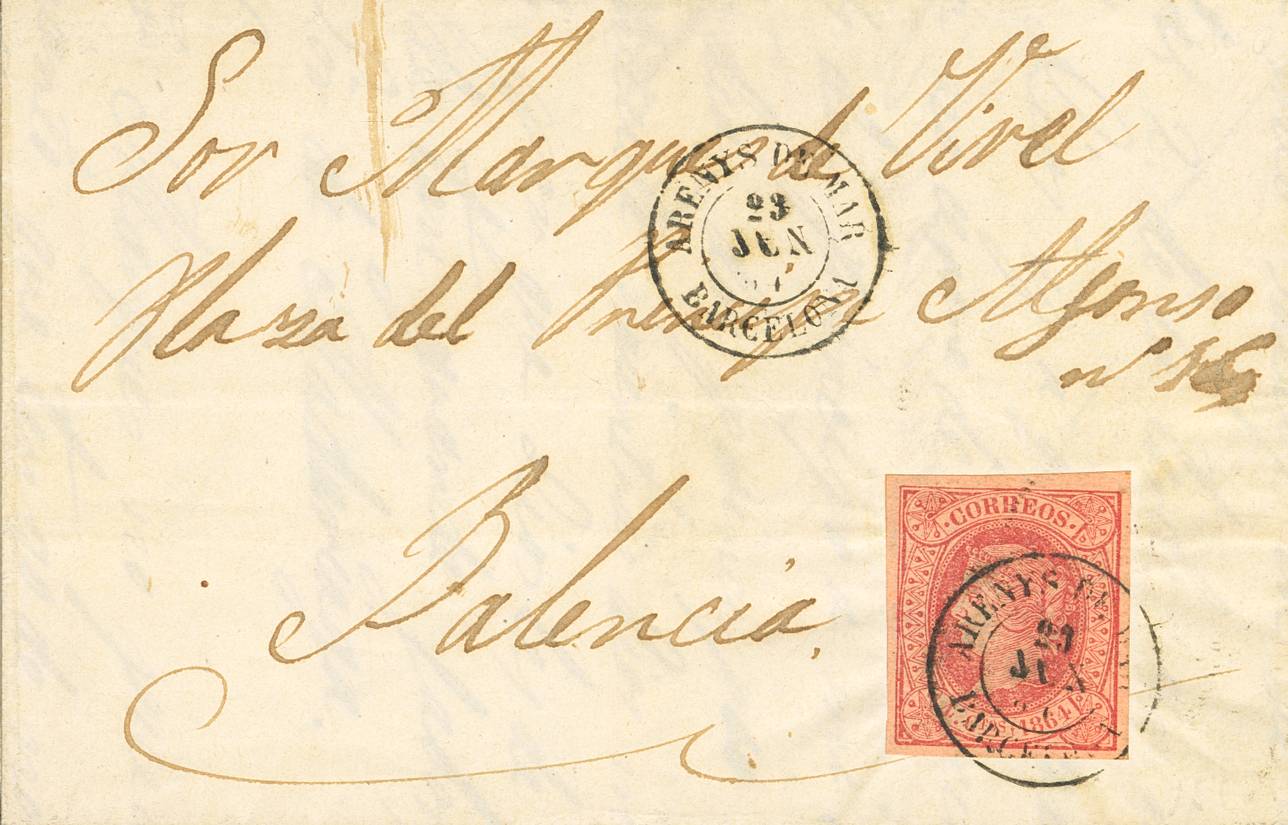 Sor Marques de Virel
Plaza del Principe Alfonso
nº
Valencia,
ARENYS DE MAR
23
JUN
BARCELONA
CORREOS
1864
ARENYS DE
JUN
BARCELONA